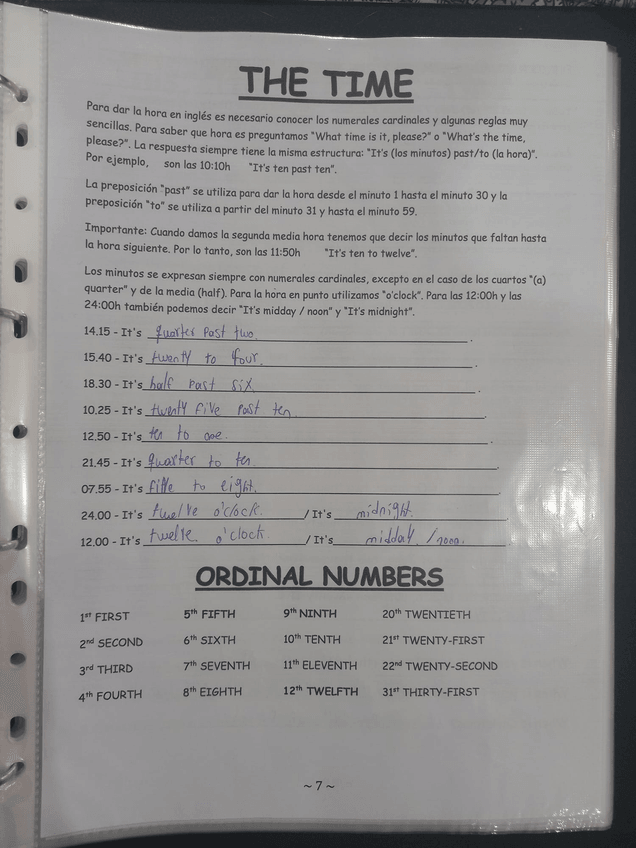 THE TIME
Para dar la hora en inglés es necesario conocer los numerales cardinales y algunas reglas muy
sencillas. Para saber que hora es preguntamos "What time is it, please?" o "What's the time,
please?". La respuesta siempre tiene la misma estructura: "It's (los minutos) past/to (la hora)".
Por ejemplo, son las 10:10h "It's ten past ten".
La preposición "past" se utiliza para dar la hora desde el minuto 1 hasta el minuto 30 y la
preposición "to" se utiliza a partir del minuto 31 y hasta el minuto 59.
Importante: Cuando damos la segunda media hora tenemos que decir los minutos que faltan hasta
la hora siguiente. Por lo tanto, son las 11:50h "It's ten to twelve".
Los minutos se expresan siempre con numerales cardinales, excepto en el caso de los cuartos "(a)
quarter" y de la media (half). Para la hora en punto utilizamos "o'clock". Para las 12:00h y las
24:00h también podemos decir "It's midday / noon" y "It's midnight".
14.15 - It's quarter past two.
15.40 - It's twenty to four.
18.30 - It's half past six.
10.25 - It's twenty five past ten.
12.50 - It's ten to one.
21.45 - It's quarter to ten.
07.55 - It's fifte to eight.
24.00 - It's twelve o'clock. / It's midnight.
12.00 - It's twelve o'clock. / It's midday / noon.
ORDINAL NUMBERS
1st FIRST 5th FIFTH 9th NINTH 20th TWENTIETH
2nd SECOND 6th SIXTH 10th TENTH 21st TWENTY-FIRST
3rd THIRD 7th SEVENTH 11th ELEVENTH 22nd TWENTY-SECOND
4th FOURTH 8th EIGHTH 12th TWELFTH 31st THIRTY-FIRST
~ 7 ~